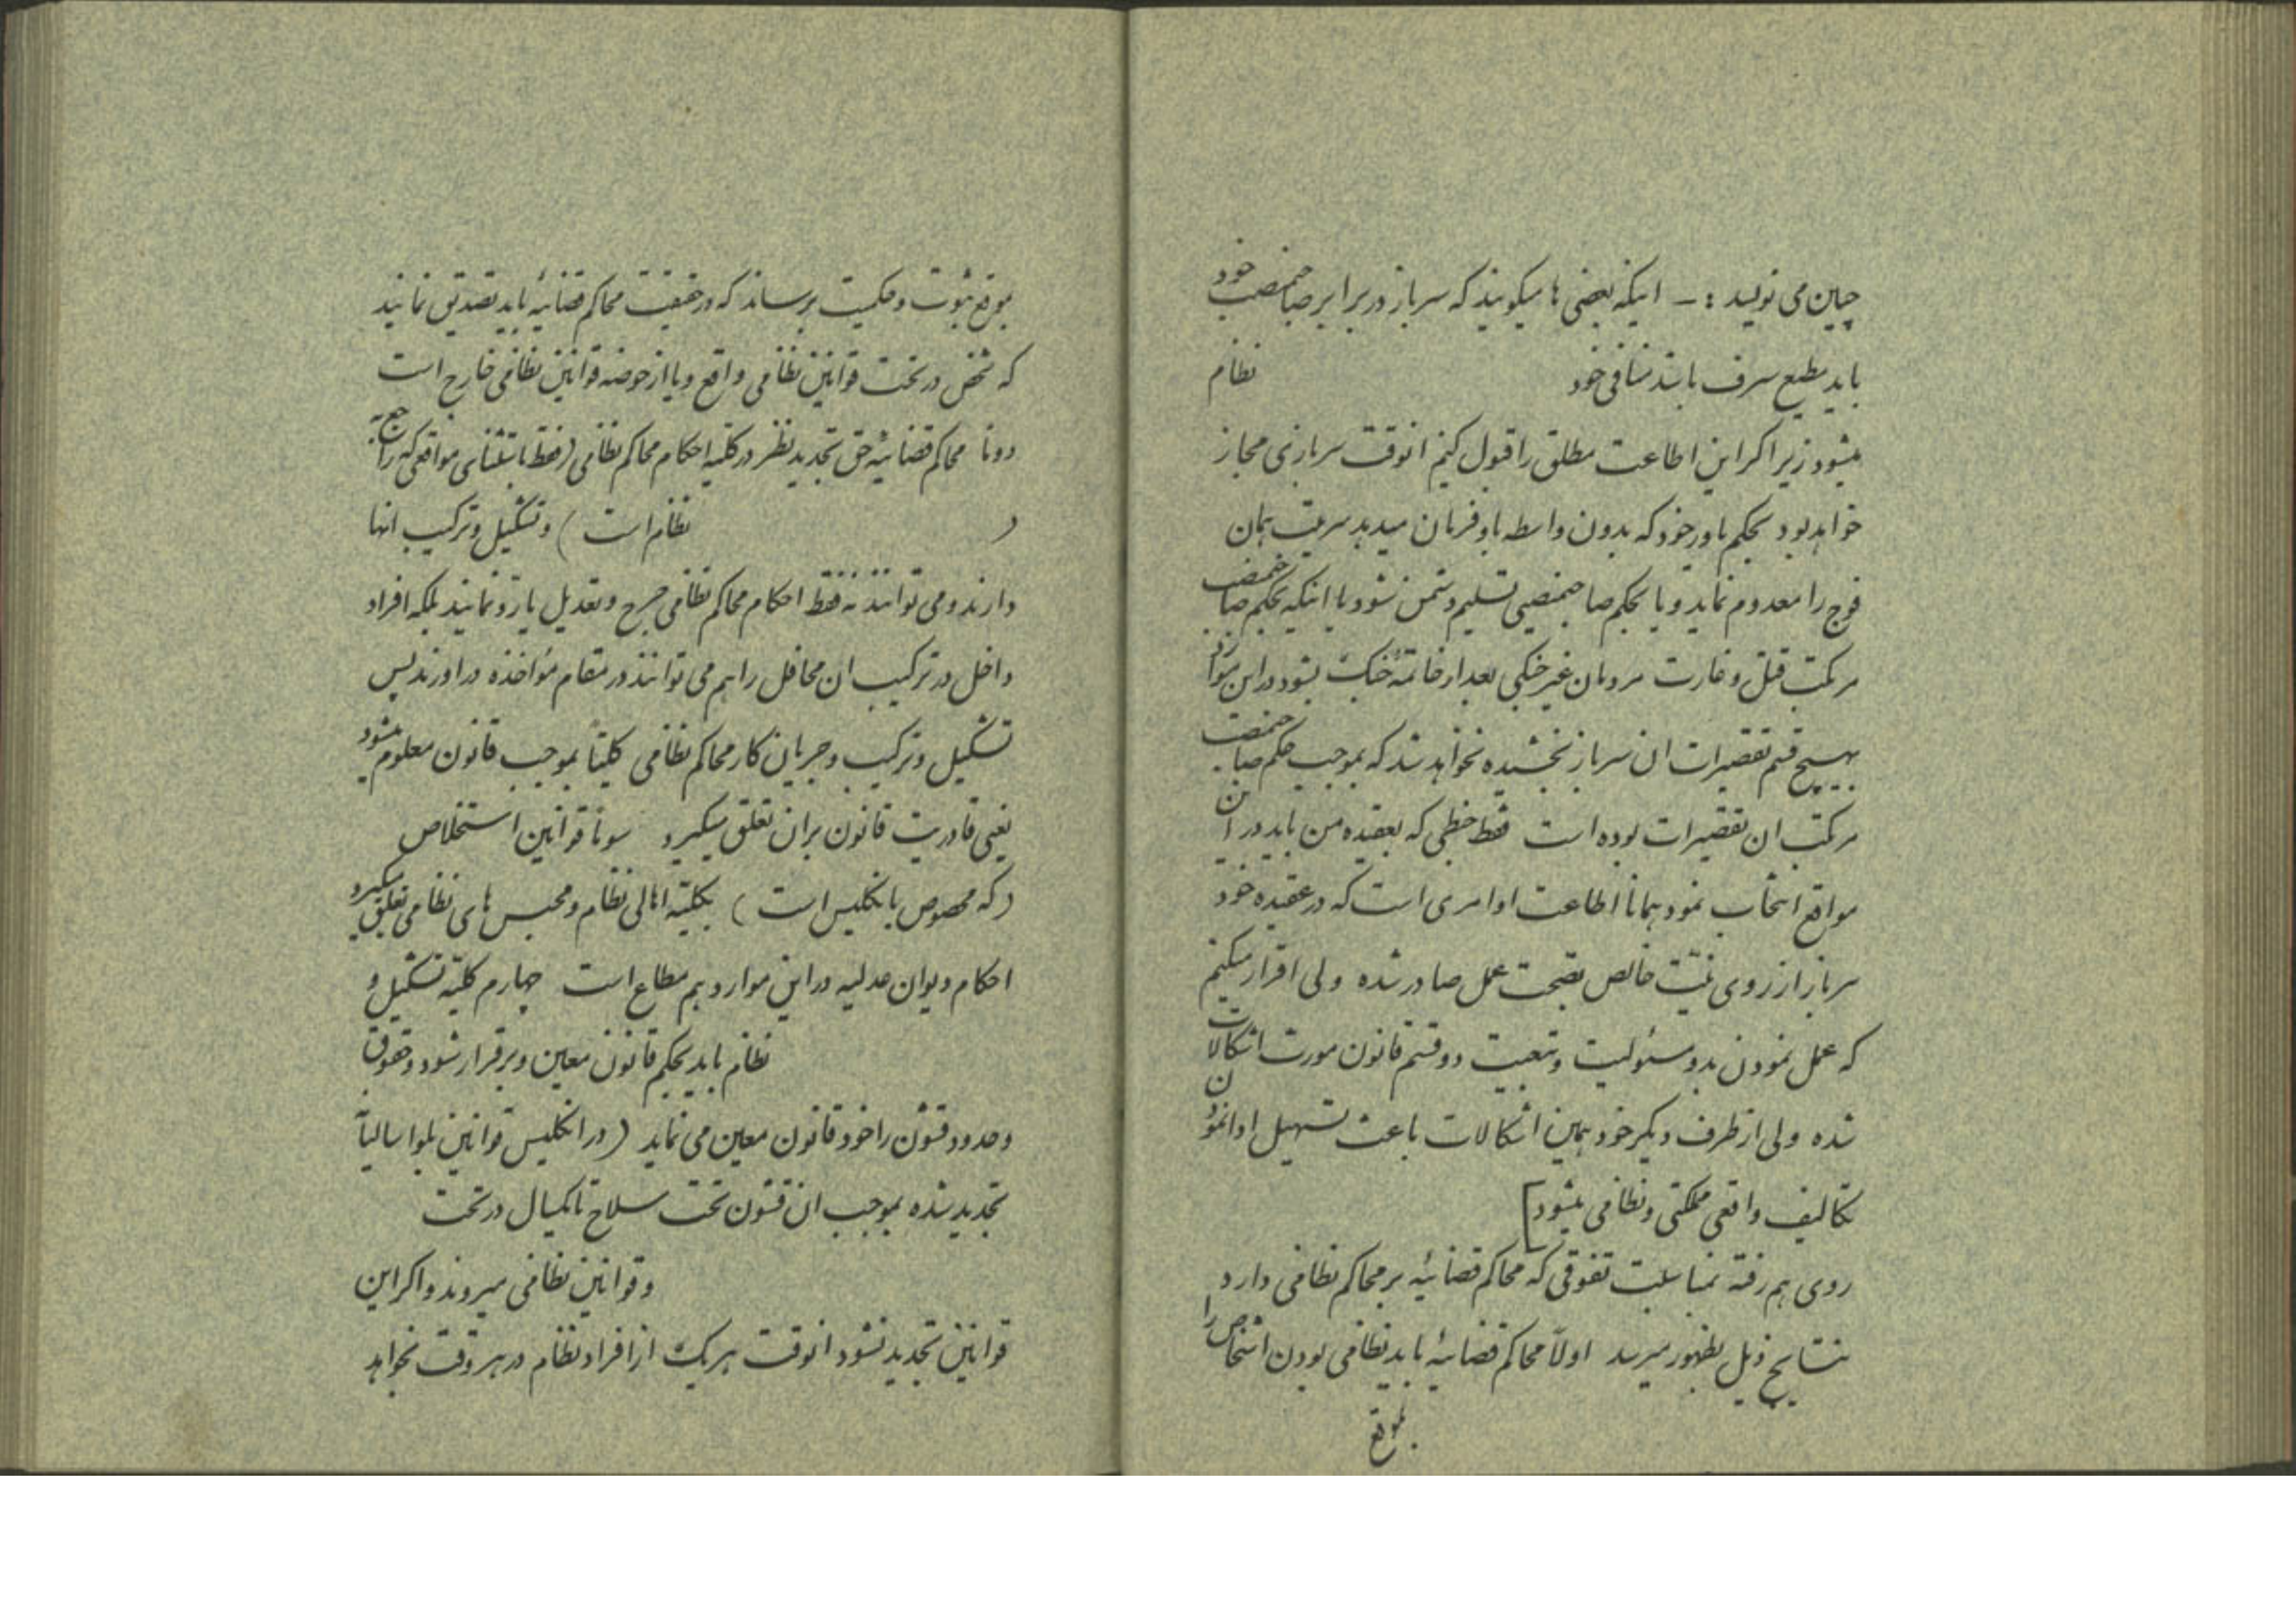 چنین می نویسد :- اینکه بعضی ها میگویند که سرباز در برابر صاحبمنصب خود
باید مطیع صرف باشد منافی خود نظام
میشود زیرا اگر این اطاعت مطلق را قبول کنیم انوقت سربازی مجاز
خواهد بود بحکم یاور خود که بدون واسطه باو فرمان میدهد سرتیپ همان
فوج را معدوم نماید و یا بحکم صاحبمنصبی تسلیم دشمن شود یا اینکه بحکم صاحبمنصب
مرتکب قتل و غارت مردمان غیر جنگی بعد از خاتمهٔ جنگ بشود در این موارد
بهیچ قسم تقصیرات ان سرباز بخشیده نخواهد شد که بموجب حکم صاحبمنصب
مرتکب ان تقصیرات بوده است فقط خطی که بعقیده من باید در ان
مواقع انتخاب نمود همانا اطاعت اوامری است که در عقیده خود
سرباز از روی نیّت خالص بصحت عمل صادر شده ولی اقرار میکنیم
که عمل نمودن بدو مسئولیت و تبعیت دو قسم قانون مورث اشکالات
شده ولی از طرف دیگر خود همین اشکالات باعث تسهیل ادا نمودن
تکالیف واقعی مملکتی و نظامی میشود]
روی هم رفته بمناسبت تفوقی که محاکم قضائیه بر محاکم نظامی دارد
نتایج ذیل بظهور میرسد اولاً محاکم قضائیه باید نظامی بودن اشخاص را
بموقع
بموقع ثبوت و حکمیت برساند که در حقیقت محاکم قضائیه باید تصدیق نمایند
که شخص در تحت قوانین نظامی واقع و یا از حوضه قوانین نظامی خارج است
دوما محاکم قضائیه حق تجدید نظر در کلیه احکام محاکم نظامی (فقط باستثنای مواقعی که راجع
ر نظام است) و تشکیل و ترکیب انها
دارند و می توانند نه فقط احکام محاکم نظامی جرح و تعدیل یا رد نمایند بلکه افراد
داخل در ترکیب ان محافل را هم می توانند در مقام مؤاخذه در اورند پس
تشکیل و ترکیب و جریان کار محاکم نظامی کلیتاً بموجب قانون معلوم میشود
یعنی قادریت قانون بران تعلق میگیرد سوماً قوانین استخلاص
(که مخصوص بانگلیس است) بکلیّه اهالی نظام و محبس های نظامی تعلق میگیرد
احکام دیوان عدلیه در این موارد هم مطاع است چهارم کلیّه تشکیل و
نظام باید بحکم قانون معین و برقرار شود و حقوق
و حدود قشون را خود قانون معین می نماید (در انگلیس قوانین بلوا سالیاً
تجدید شده بموجب ان قشون تحت سلاح تا یکسال در تحت
و قوانین نظامی میروند و اگر این
قوانین تجدید نشود انوقت هر یک از افراد نظام در هر وقت بخواهد